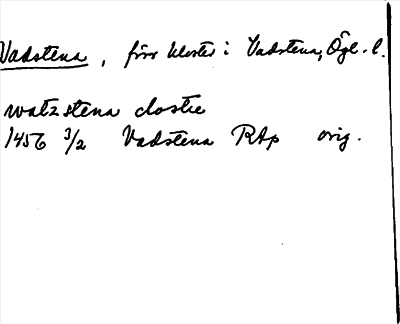 Vadstena, förr kloster i Vadstena, Ögl. l.
watzstena closter
1456 3/2 Vadstena RAp orig.